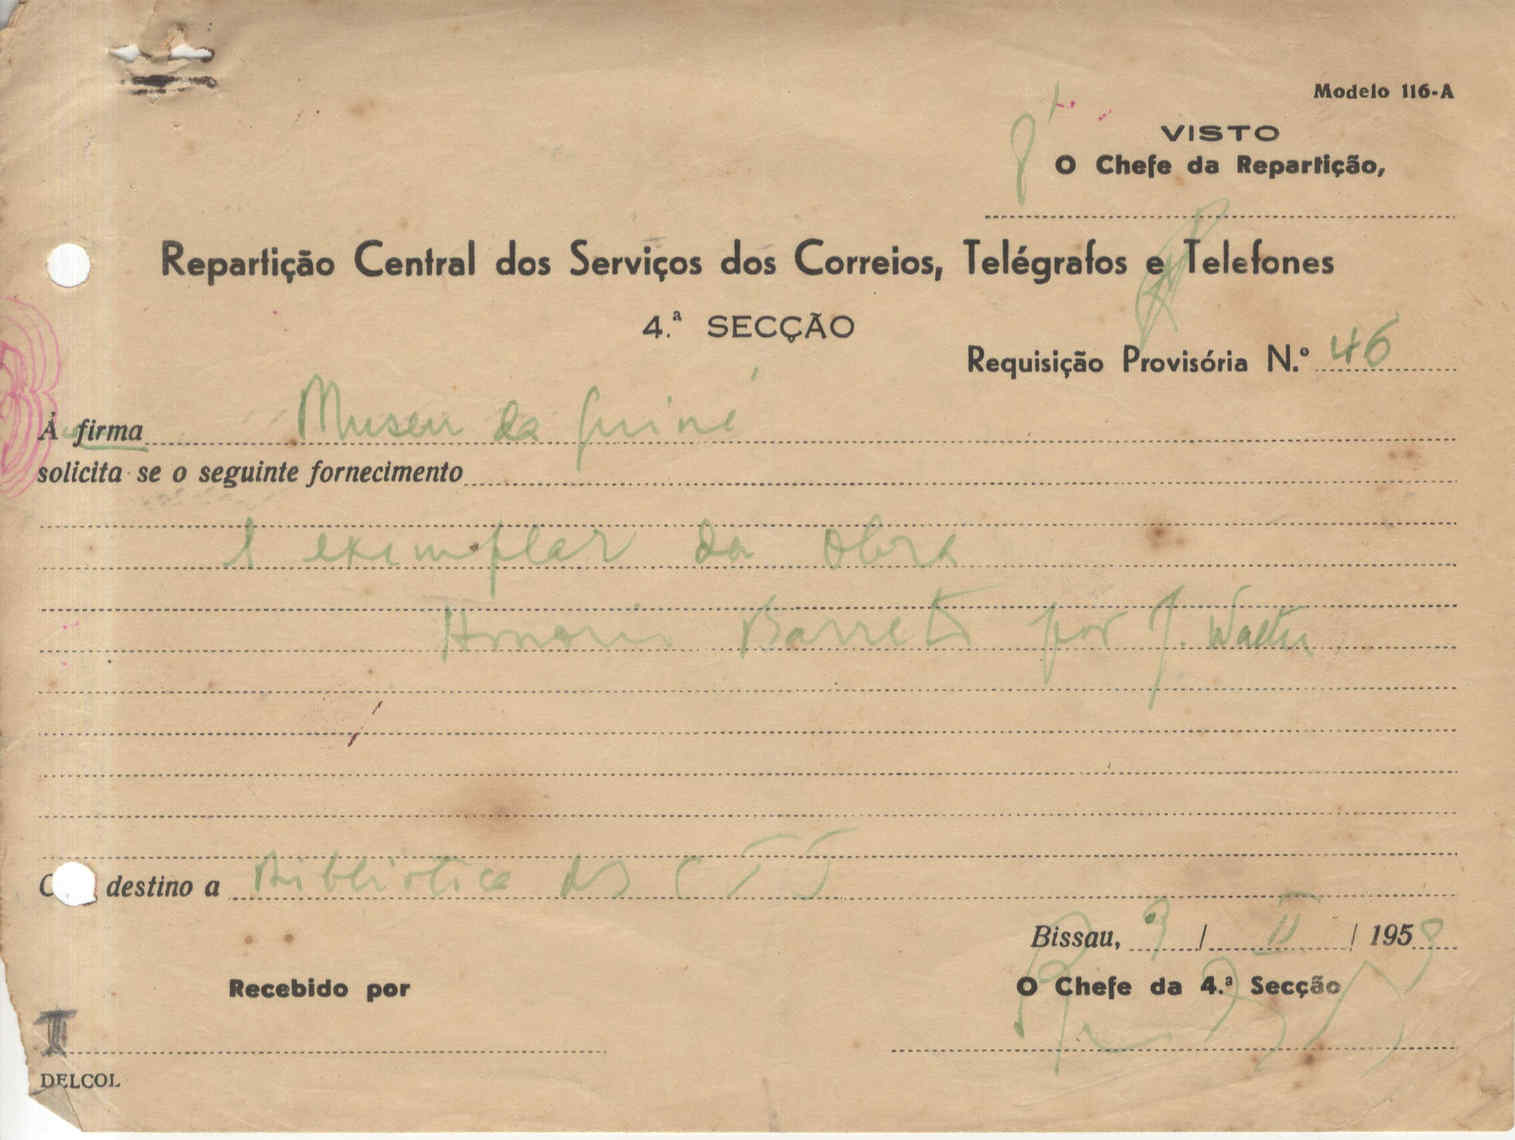 Modelo 116-A
VISTO
O Chefe da Repartição,
Repartição Central dos Serviços dos Correios, Telégrafos e Telefones
4.ª SECÇÃO
Requisição Provisória N.º 46
À firma Museu da Guiné
solicita se o seguinte fornecimento
1 exemplar da obra
Honorio Barreto por J. Walter
C destino a Biblioteca dos CTT
Bissau, 9 / II / 1958
Recebido por
O Chefe da 4.ª Secção
I
DELCOL